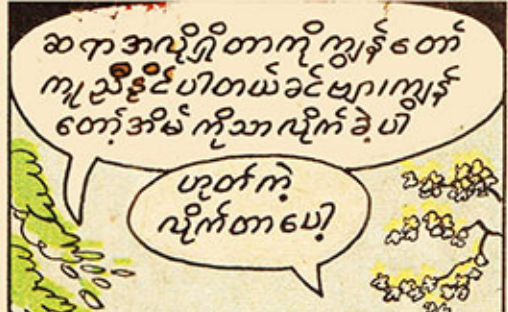 ဆရာအလိုရှိတာကိုကျွန်တော်
ကူညီနိုင်ပါတယ်ခင်ဗျာ၊ကျွန်
တော့်အိမ်ကိုသာလိုက်ခဲ့ပါ
ဟုတ်ကဲ့
လိုက်တာပေါ့